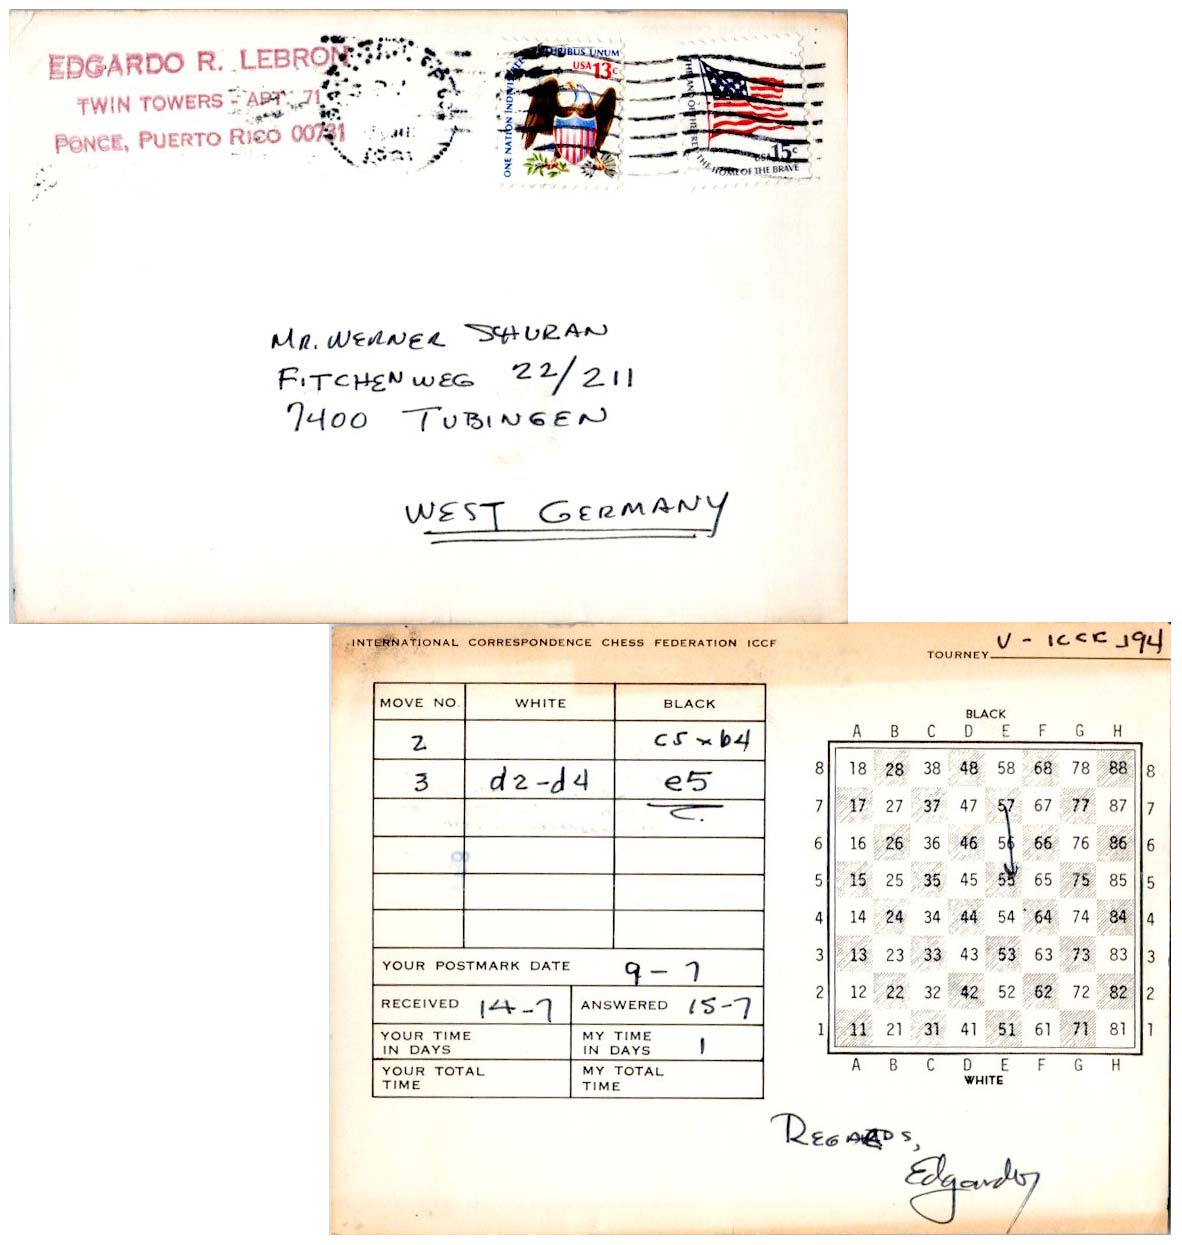 EDGARDO R. LEBRON
TWIN TOWERS - APT. 71
PONCE, PUERTO RICO 00731
E PLURIBUS UNUM
USA 13c
ONE NATION INDIVISIBLE
THE LAND OF THE FREE THE HOME OF THE BRAVE
USA 15c
MR. WERNER SCHURAN
FITCHENWEG 22/211
7400 TUBINGEN
WEST GERMANY
INTERNATIONAL CORRESPONDENCE CHESS FEDERATION ICCF
TOURNEY V - ICCF 194
MOVE NO. WHITE BLACK
2 c5xb4
3 d2-d4 e5
YOUR POSTMARK DATE 9-7
RECEIVED 14-7 ANSWERED 15-7
YOUR TIME IN DAYS MY TIME IN DAYS 1
YOUR TOTAL TIME MY TOTAL TIME
BLACK
A B C D E F G H
8 18 28 38 48 58 68 78 88 8
7 17 27 37 47 57 67 77 87 7
6 16 26 36 46 56 66 76 86 6
5 15 25 35 45 55 65 75 85 5
4 14 24 34 44 54 64 74 84 4
3 13 23 33 43 53 63 73 83 3
2 12 22 32 42 52 62 72 82 2
1 11 21 31 41 51 61 71 81 1
A B C D E F G H
WHITE
REGARDS,
Edgardo